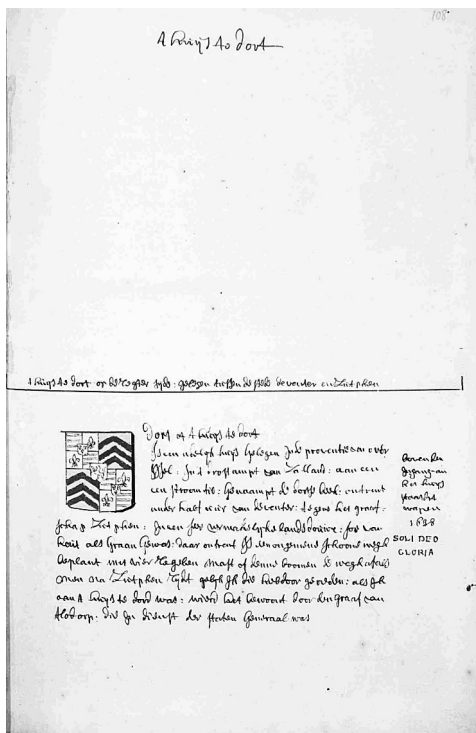 108
t huijs te dort
t huijs te dort op de regter zyde: gelegen tussen de stede deventer en Zutphen
Dort of t huijs te dort
Is een adelyk huijs gelegen In de proventie van over
Yssel: In t drostampt van Zallant: aan een
een stroomtie: genaampt de dortse beek: ontrent
ander half uur van deventer: tegens het graaf-
schap Zutphen: In een seer vermakelyke landsdouwe: soo van
hout als graan gewas: daar ontrent Is een ongemene schoone wegh
beplant met vier regelen mast of denne boomen de wegh als
men na Zutphen rydt gelyk Ik die hier door gereden: als Ik
aan t huijs te dord was: wierd het bewoont door den graaf van
flodorp: die In dienst der staten Generaal was
boven den
Ingang van
het huys
staat het
wapen
1638
SOLI DEO
GLORIA